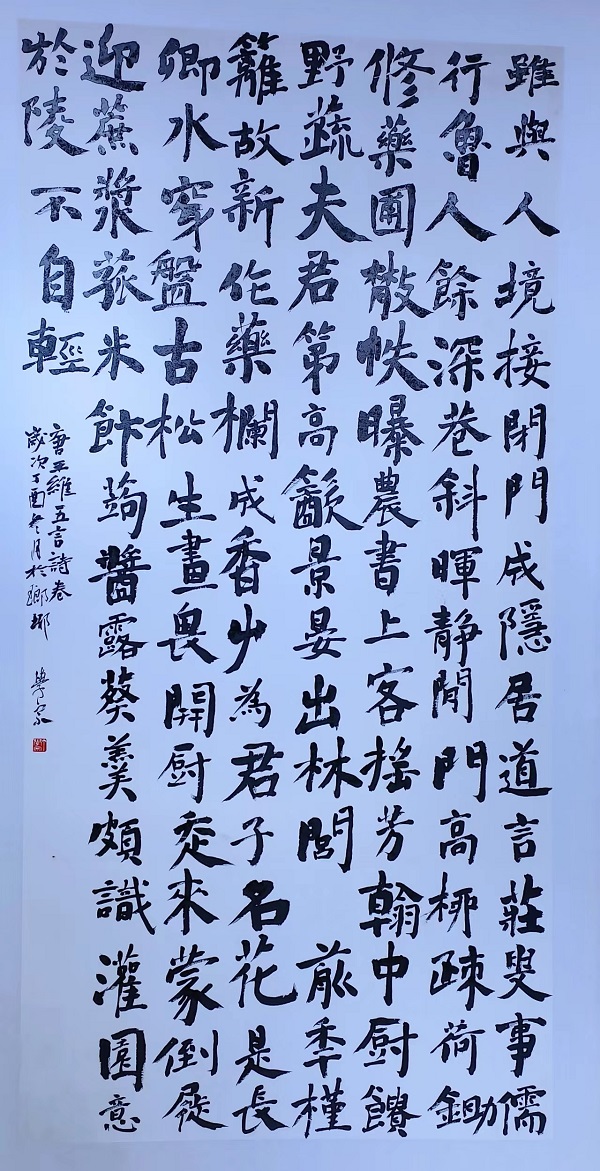 雖與人境接閉門成隱居道言莊叟事儒
行魯人餘深巷斜暉靜閒門高柳疎荷鋤
修藥圃散帙曝農書上客搖芳翰中厨饋
野蔬夫君第高景晏出林閭前年槿
籬故新作藥欄成香艸為君子名花是長
卿水穿盤古松生畫畏開厨走來蒙倒屣
迎蔗漿菰米飰蒟醬露葵羹頗識灌園意
於陵不自輕
唐王維五言詩卷
歲次丁酉冬月於瑯琊 學